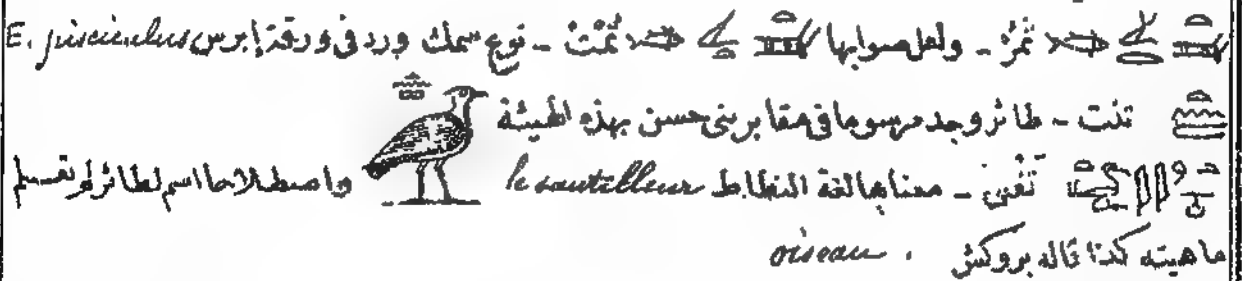 ثمر - ولعل صوابها ثمت - نوع سمك ورد فى ورقة إبرس E. pisciculus
تنت - طائر وجد مرسوما فى مقابر بنى حسن بهذه الهيئة
تنفى - معناها لغة النطاط le sautilleur واصطلاحا اسم لطائر لم تعلم
ماهيته كذا قاله بروكش . oiseau